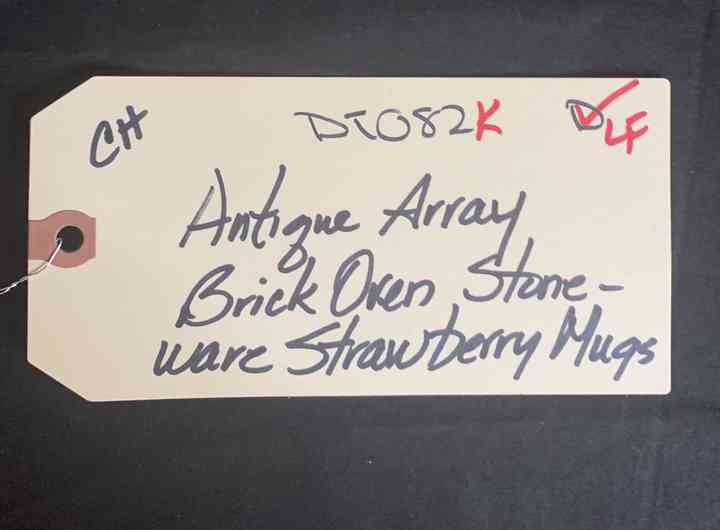 CH DJ082K D LF
Antique Array
Brick Oven Stone-
ware Strawberry Mugs